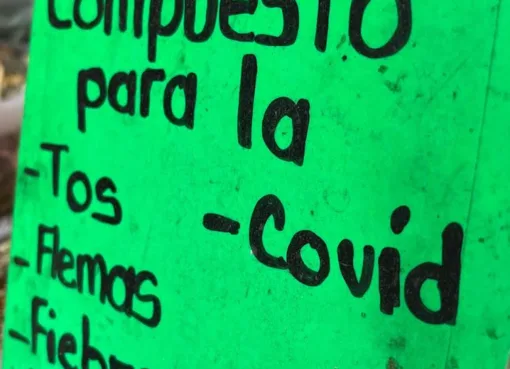 compuesto
para la
-Tos
-Covid
-Flemas
-Fiebre